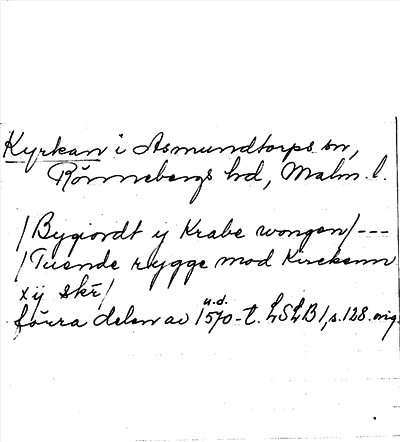 Kyrkan i Asmundtorps sn,
Rönnebergs hd, Malm. l.
/Bygiordt y Krabe wongen/---
/Tuende rygge mod Kirckenn
xij skr/
u.d.
förra delen av 1570-t. LSLB 1, s. 128. orig.